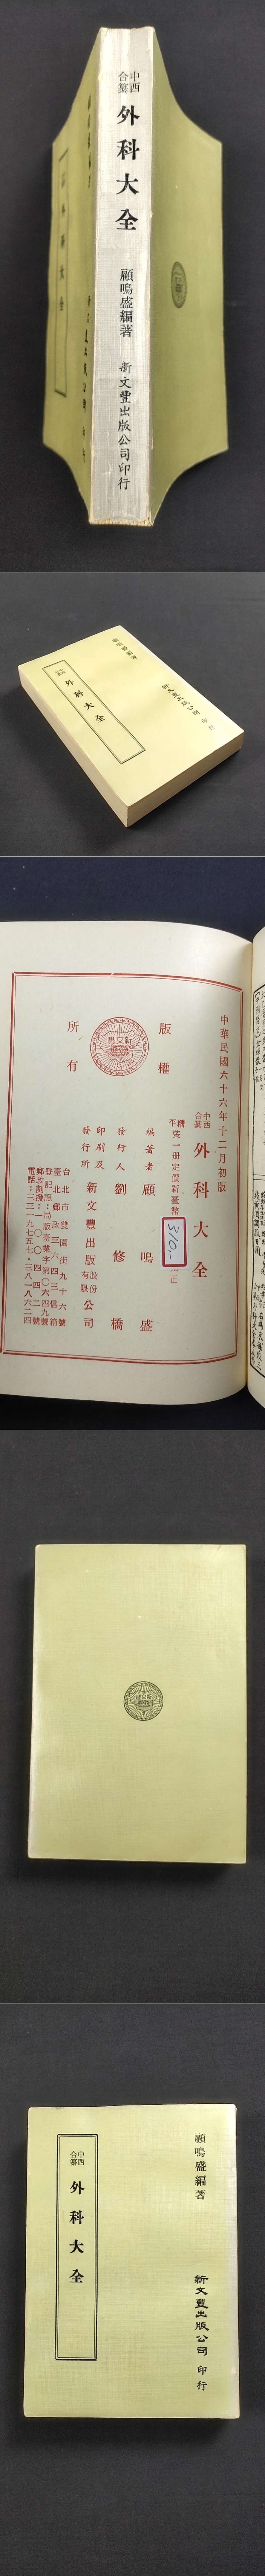 中西
合纂
外科大全
顧鳴盛編著
新文豐出版公司印行
外科大全
顧鳴盛編著
新文豐出版公司 印行
中華民國六十六年十二月初版
中西
合纂
外科大全
精
平
裝一册定價新臺幣
310.-
正
版權
所有
新文豐
編著者 顧鳴盛
發行人 劉修橋
印刷及
發行所
新文豐出版
股份
有限
公司
台北市雙園街九十六號
臺北郵政三六四三信箱
登記證：局版臺業字第〇六四九號
郵政劃撥：一〇〇四四二號
電話：三三一九七五七・三八一八六二四
新文豐
顧鳴盛編著
新文豐出版公司 印行
中西
合纂
外科大全